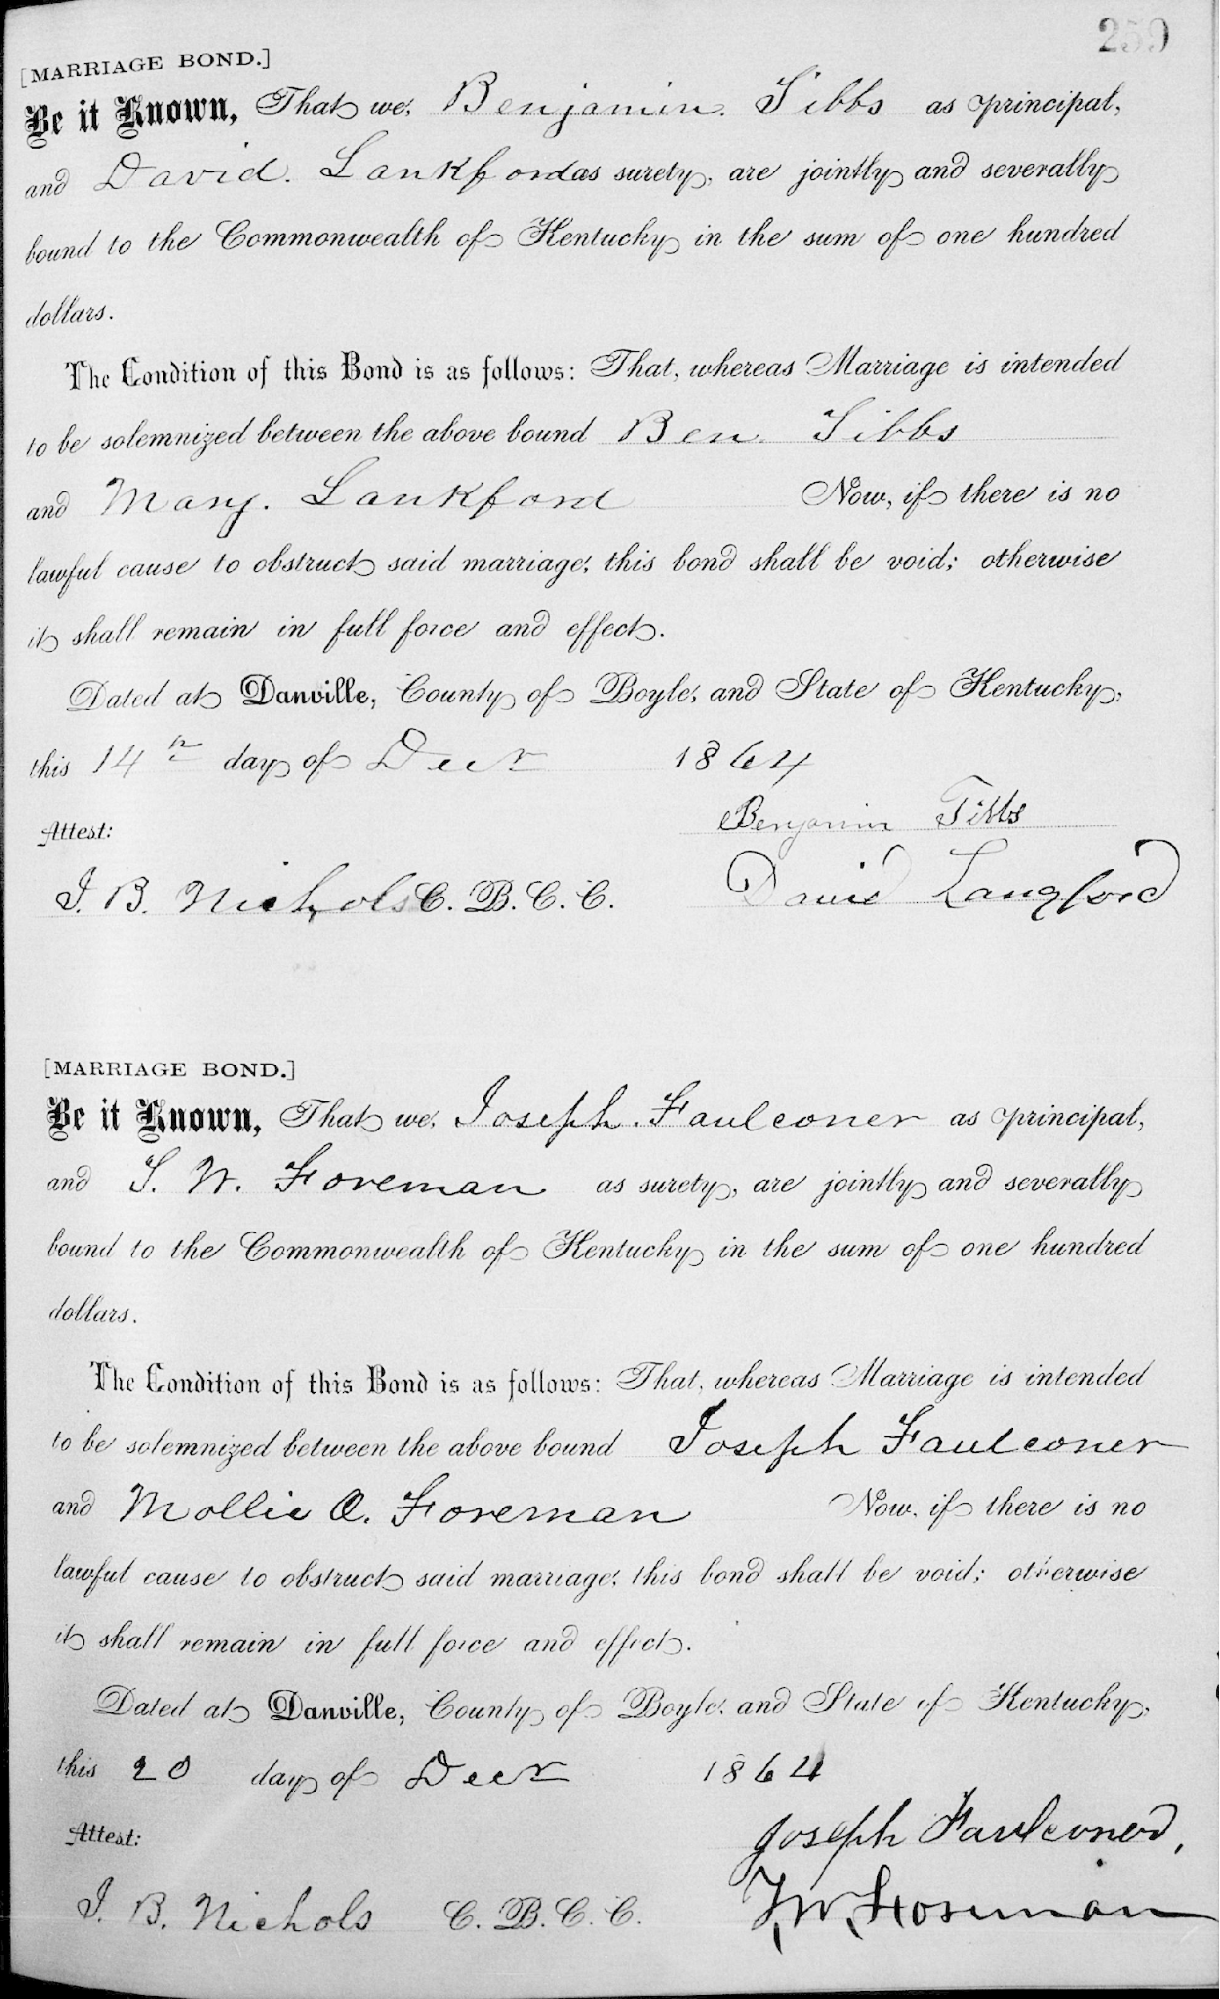 259
[MARRIAGE BOND.]
Be it Known, That we, Benjamin Tibbs as principal,
and David Lankford as surety, are jointly and severally
bound to the Commonwealth of Kentucky in the sum of one hundred
dollars.
The Condition of this Bond is as follows: That, whereas Marriage is intended
to be solemnized between the above bound Ben. Tibbs
and Mary. Lankford Now, if there is no
lawful cause to obstruct said marriage, this bond shall be void; otherwise
it shall remain in full force and effect.
Dated at Danville, County of Boyle, and State of Kentucky,
this 14th day of Decr 1864
Benjamin Tibbs
Attest:
J. B. Nichols C. B. C. C. David Langford
[MARRIAGE BOND.]
Be it Known, That we, Joseph Faulconer as principal,
and T. W. Foreman as surety, are jointly and severally
bound to the Commonwealth of Kentucky in the sum of one hundred
dollars.
The Condition of this Bond is as follows: That, whereas Marriage is intended
to be solemnized between the above bound Joseph Faulconer
and Mollie O. Foreman Now, if there is no
lawful cause to obstruct said marriage, this bond shall be void; otherwise
it shall remain in full force and effect.
Dated at Danville, County of Boyle, and State of Kentucky,
this 20 day of Decr 1864
Attest: Joseph Faulconer,
J. B. Nichols C. B. C. C. T. W. Foreman